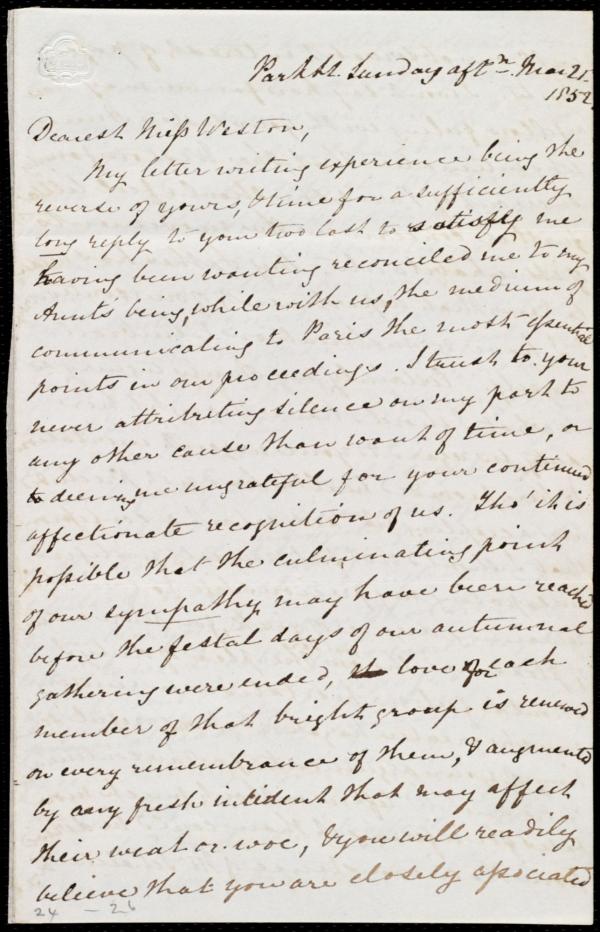 Park St. Sunday aftn. Mar 21.
1852.
Dearest Miss Weston,
My letter writing experience being the
reverse of yours, & time for a sufficiently
long reply to your two last to satisfy me
having been wanting reconciled me to my
Aunt's being, while with us, the medium of
communicating to Paris the most essential
points in our proceedings. I trust to your
never attributing silence on my part to
any other cause than want of time, or
to deeming me ungrateful for your continued
affectionate recognition of us. Tho' it is
possible that the culminating point
of our sympathy may have been reached
before the festal days of our autumnal
gathering were ended, love for each
member of that bright group is renewed
on every remembrance of them, & augmented
by any fresh incident that may affect
their weal or woe, & you will readily
believe that you are closely associated
24 – 26